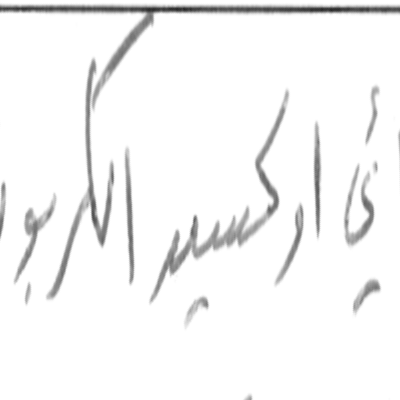 ئي اوكسيد الكربو